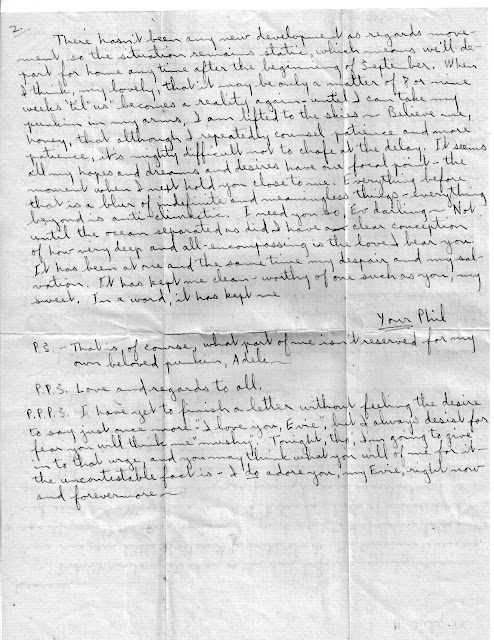 2.
There hasn't been any new development as regards move-
ment, so the situation remains static, which means we'll de-
part for home any time after the beginning of September. When
I think, my lovely, that it may be only a matter of 8 or nine
weeks 'til "us" becomes a reality again - until I can take my
punkin in my arms, I am lifted to the skies ~ Believe me,
honey, that although I repeatedly counsel patience and more
patience, it's mighty difficult not to chafe at the delay. It seems
all my hopes and dreams and desires have one focal point - the
moment when I next hold you close to me. Everything before
that is a blur of indefinite and meaningless things - everything
beyond is anti-climatic. I need you so, Ev darling ~ Not
until the ocean separated us did I have a clear conception
of how very deep and all-encompassing is the love I bear you
It has been at one and the same time my despair and my sal-
vation. It has kept me clean - worthy of one such as you, my
sweet. In a word, it has kept me
Your Phil
P.S. - That is, of course, what part of me isn't reserved for my
own beloved punkin, Adele ~
P.P.S. Love and regards to all.
P.P.P.S. I have yet to finish a letter without feeling the desire
to say just once more "I love you, Evie", but I always desist for
fear you will think me "mushy". Tonight, tho', I'm going to give
in to that urge, and you may think what you will of me for it -
the uncontestable fact is - I do adore you, my Evie, right now
and forevermore ~